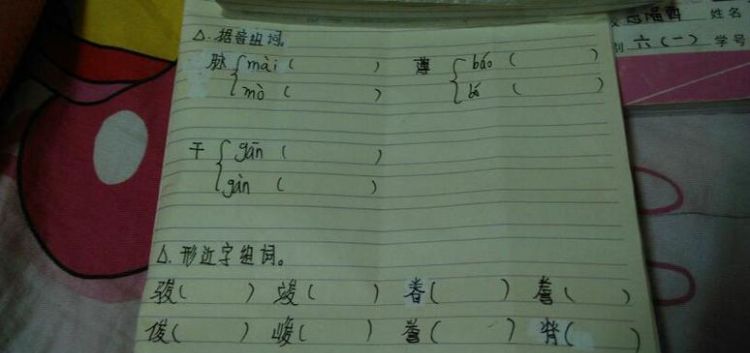 △. 据音组词.
脉 mài ( ) 薄 báo ( )
mò ( ) bó ( )
干 gān ( )
gàn ( )
△. 形近字组词。
骏( ) 竣( ) ( ) ( )
俊( ) 峻( ) ( ) ( )
姓名
六(一) 学号